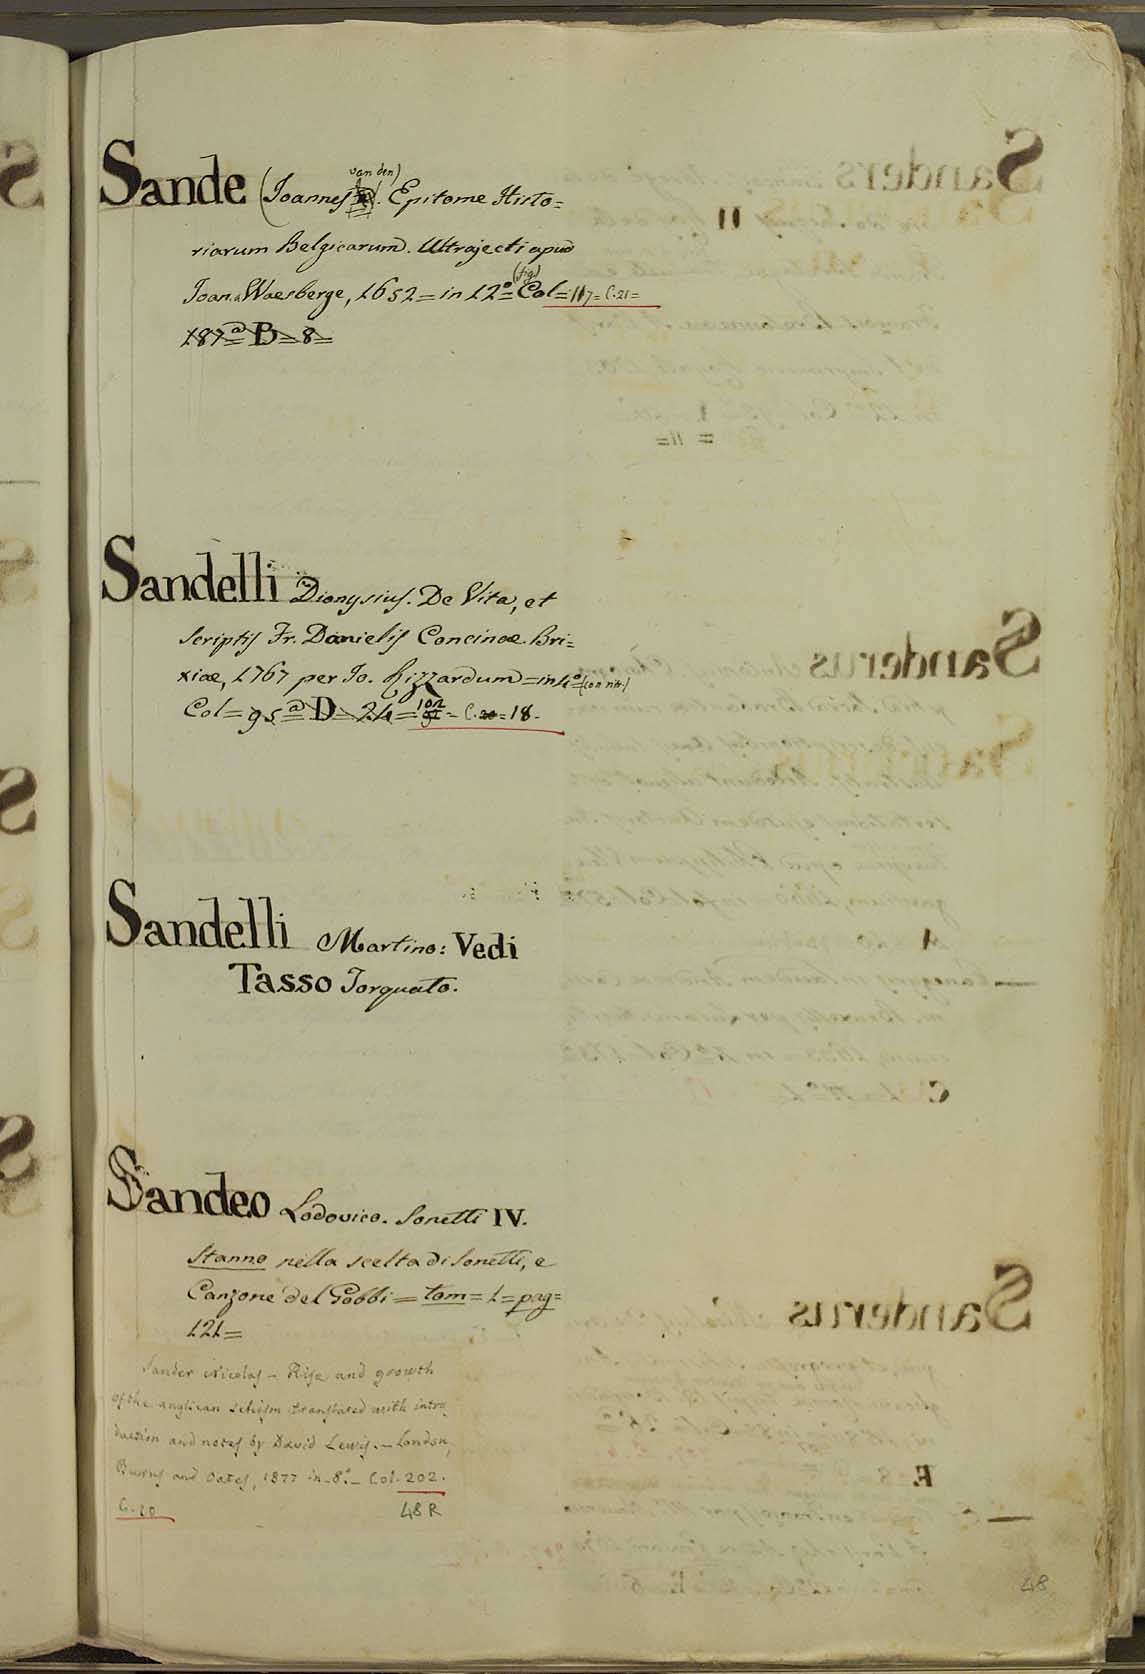 van den)
Sande (Joannes). Epitome Histo=
riarum Belgicarum. Ultrajecti apud
(fig)
Joan. a Waesberge, 1652 = in 12º = Col = 117 = C. 21 =
187 a = B = 8 =
Sandelli Dionysius. De Vita, et
scriptis Fr. Danielis Concinae. Bri=
xiae, 1767 per Jo. Rizzardum = in 4º = (con ritr.)
Col = 95 a = D = 24 = 102 - C. 20 = 18.
Sandelli Martino: Vedi
Tasso Torquato.
Sandeo Lodovico. Sonetti IV.
Stanno nella scelta di Sonetti, e
Canzone del Gobbi = tom = 1 = pag =
121 =
Sander Nicolas – Rise and growth
of the anglican schism translated with intro
duction and notes by David Lewis. – London,
Burns and Oates, 1877 in-8º – Col. 202.
C. 20 48 R
48